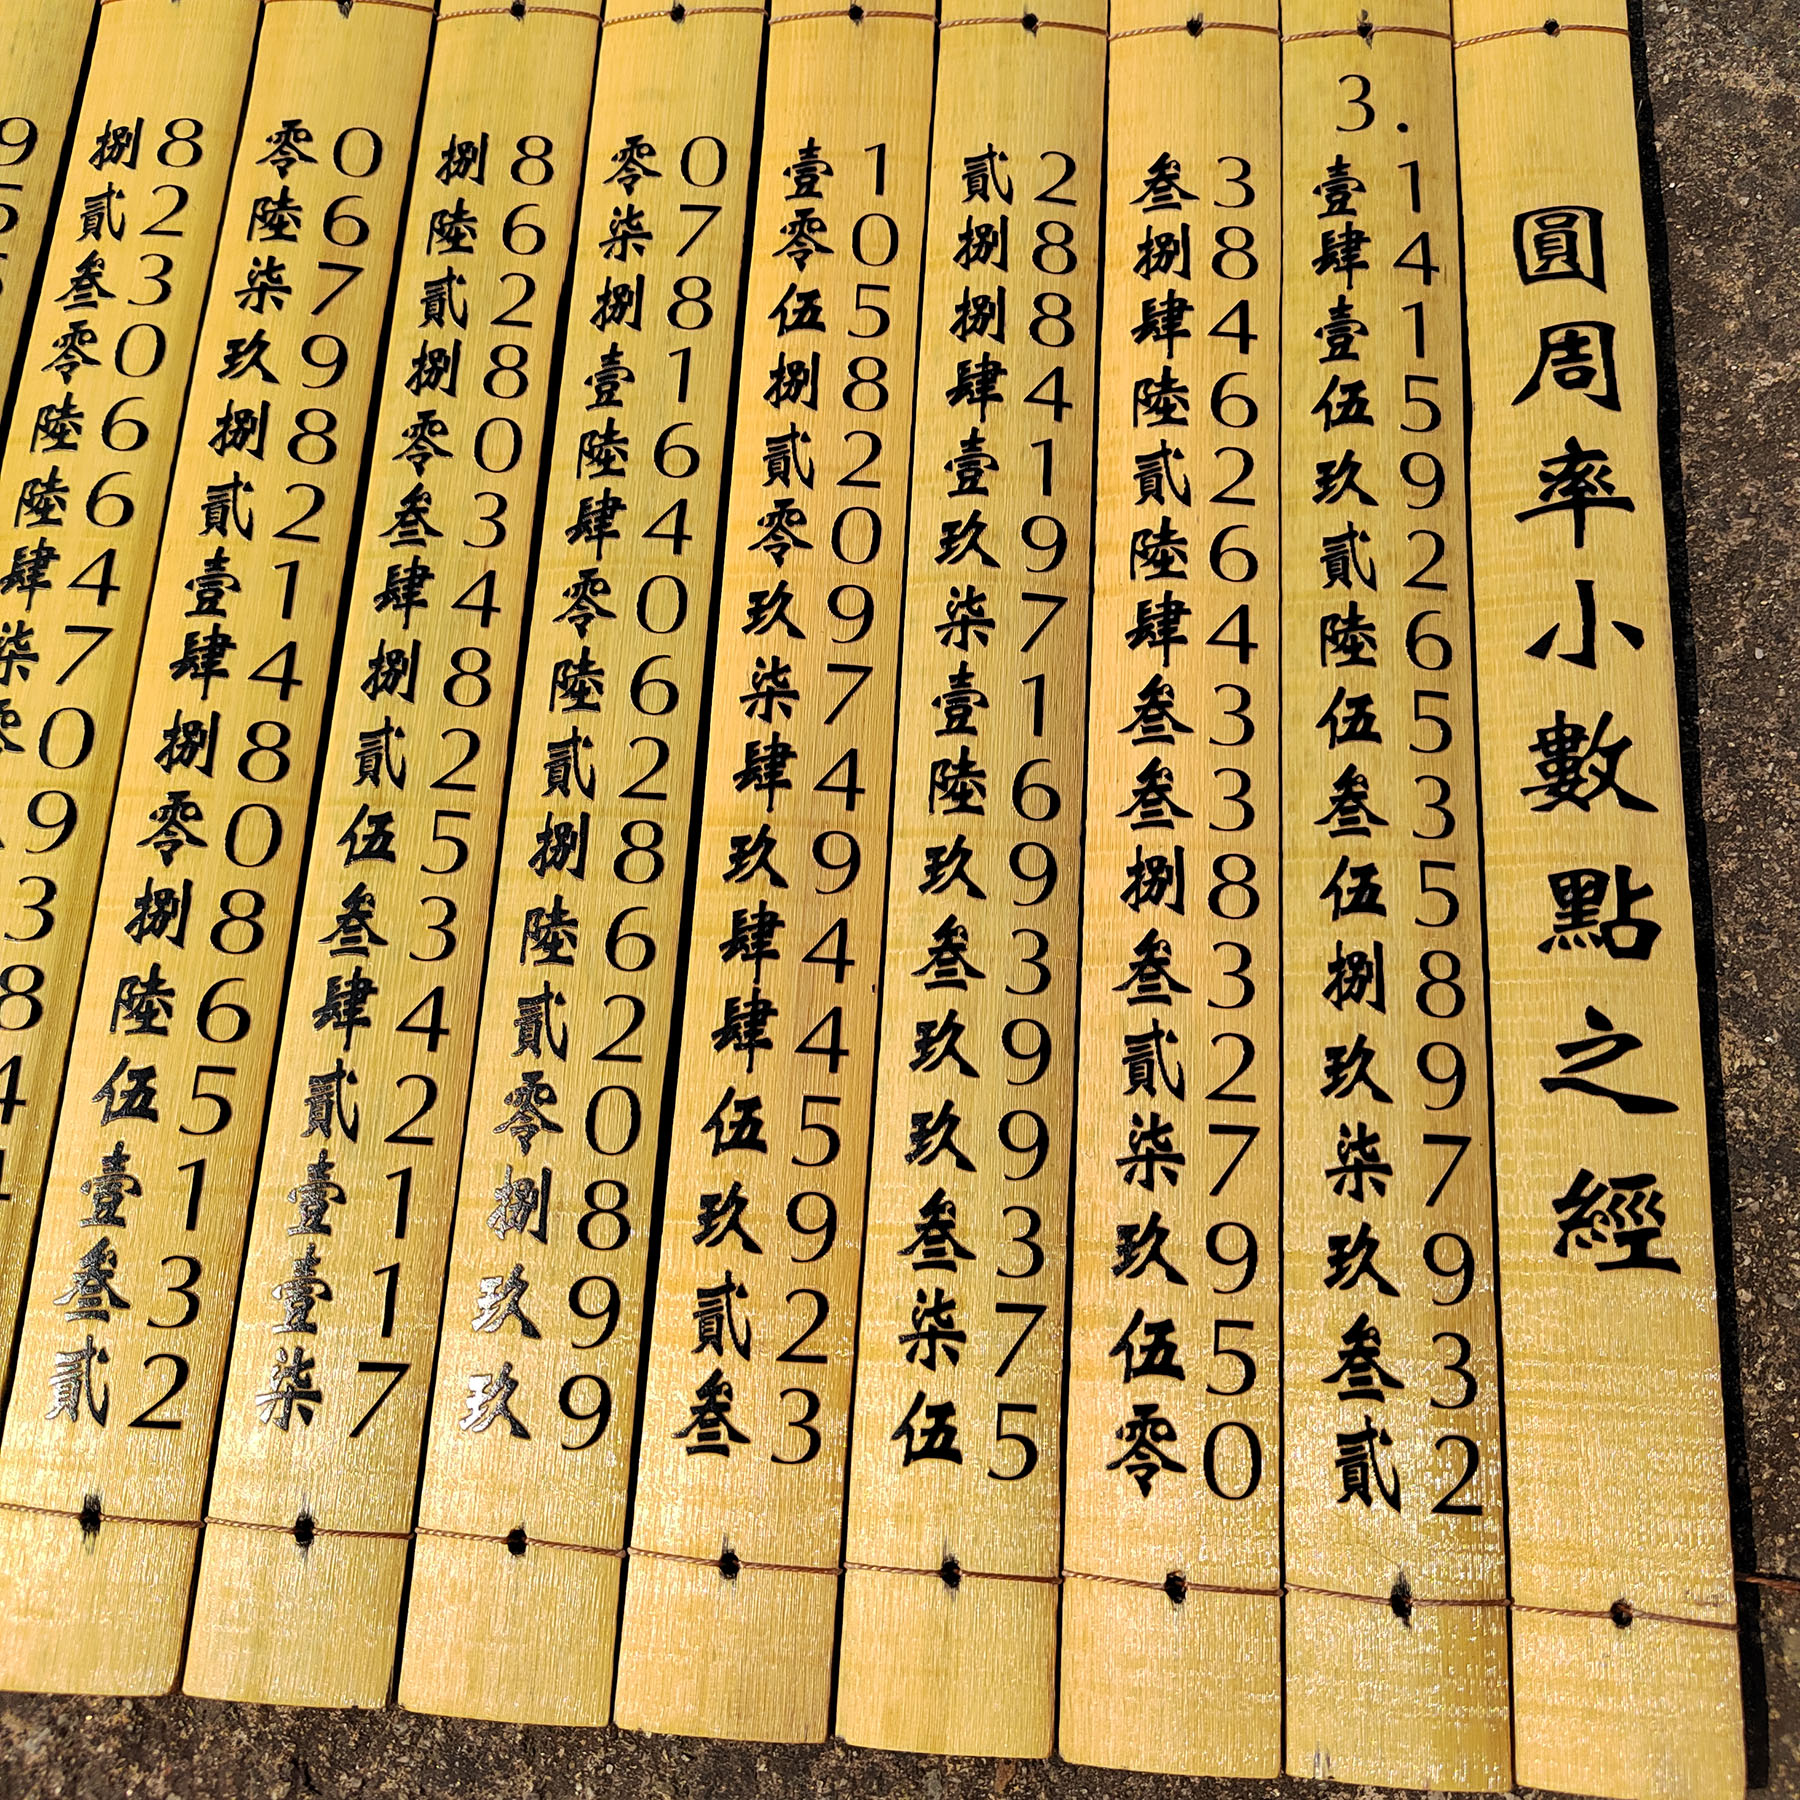 圓周率小數點之經
3.1415926535897932
壹肆壹伍玖貳陸伍叁伍捌玖柒玖叁貳
3846264338327950
叁捌肆陸貳陸肆叁叁捌叁貳柒玖伍零
2884197169399375
貳捌捌肆壹玖柒壹陸玖叁玖玖叁柒伍
1058209749445923
壹零伍捌貳零玖柒肆玖肆肆伍玖貳叁
0781640628620899
零柒捌壹陸肆零陸貳捌陸貳零捌玖玖
8628034825342117
捌陸貳捌零叁肆捌貳伍叁肆貳壹壹柒
0679821480865132
零陸柒玖捌貳壹肆捌零捌陸伍壹叁貳
82306647093844
捌貳叁零陸陸肆柒零
955